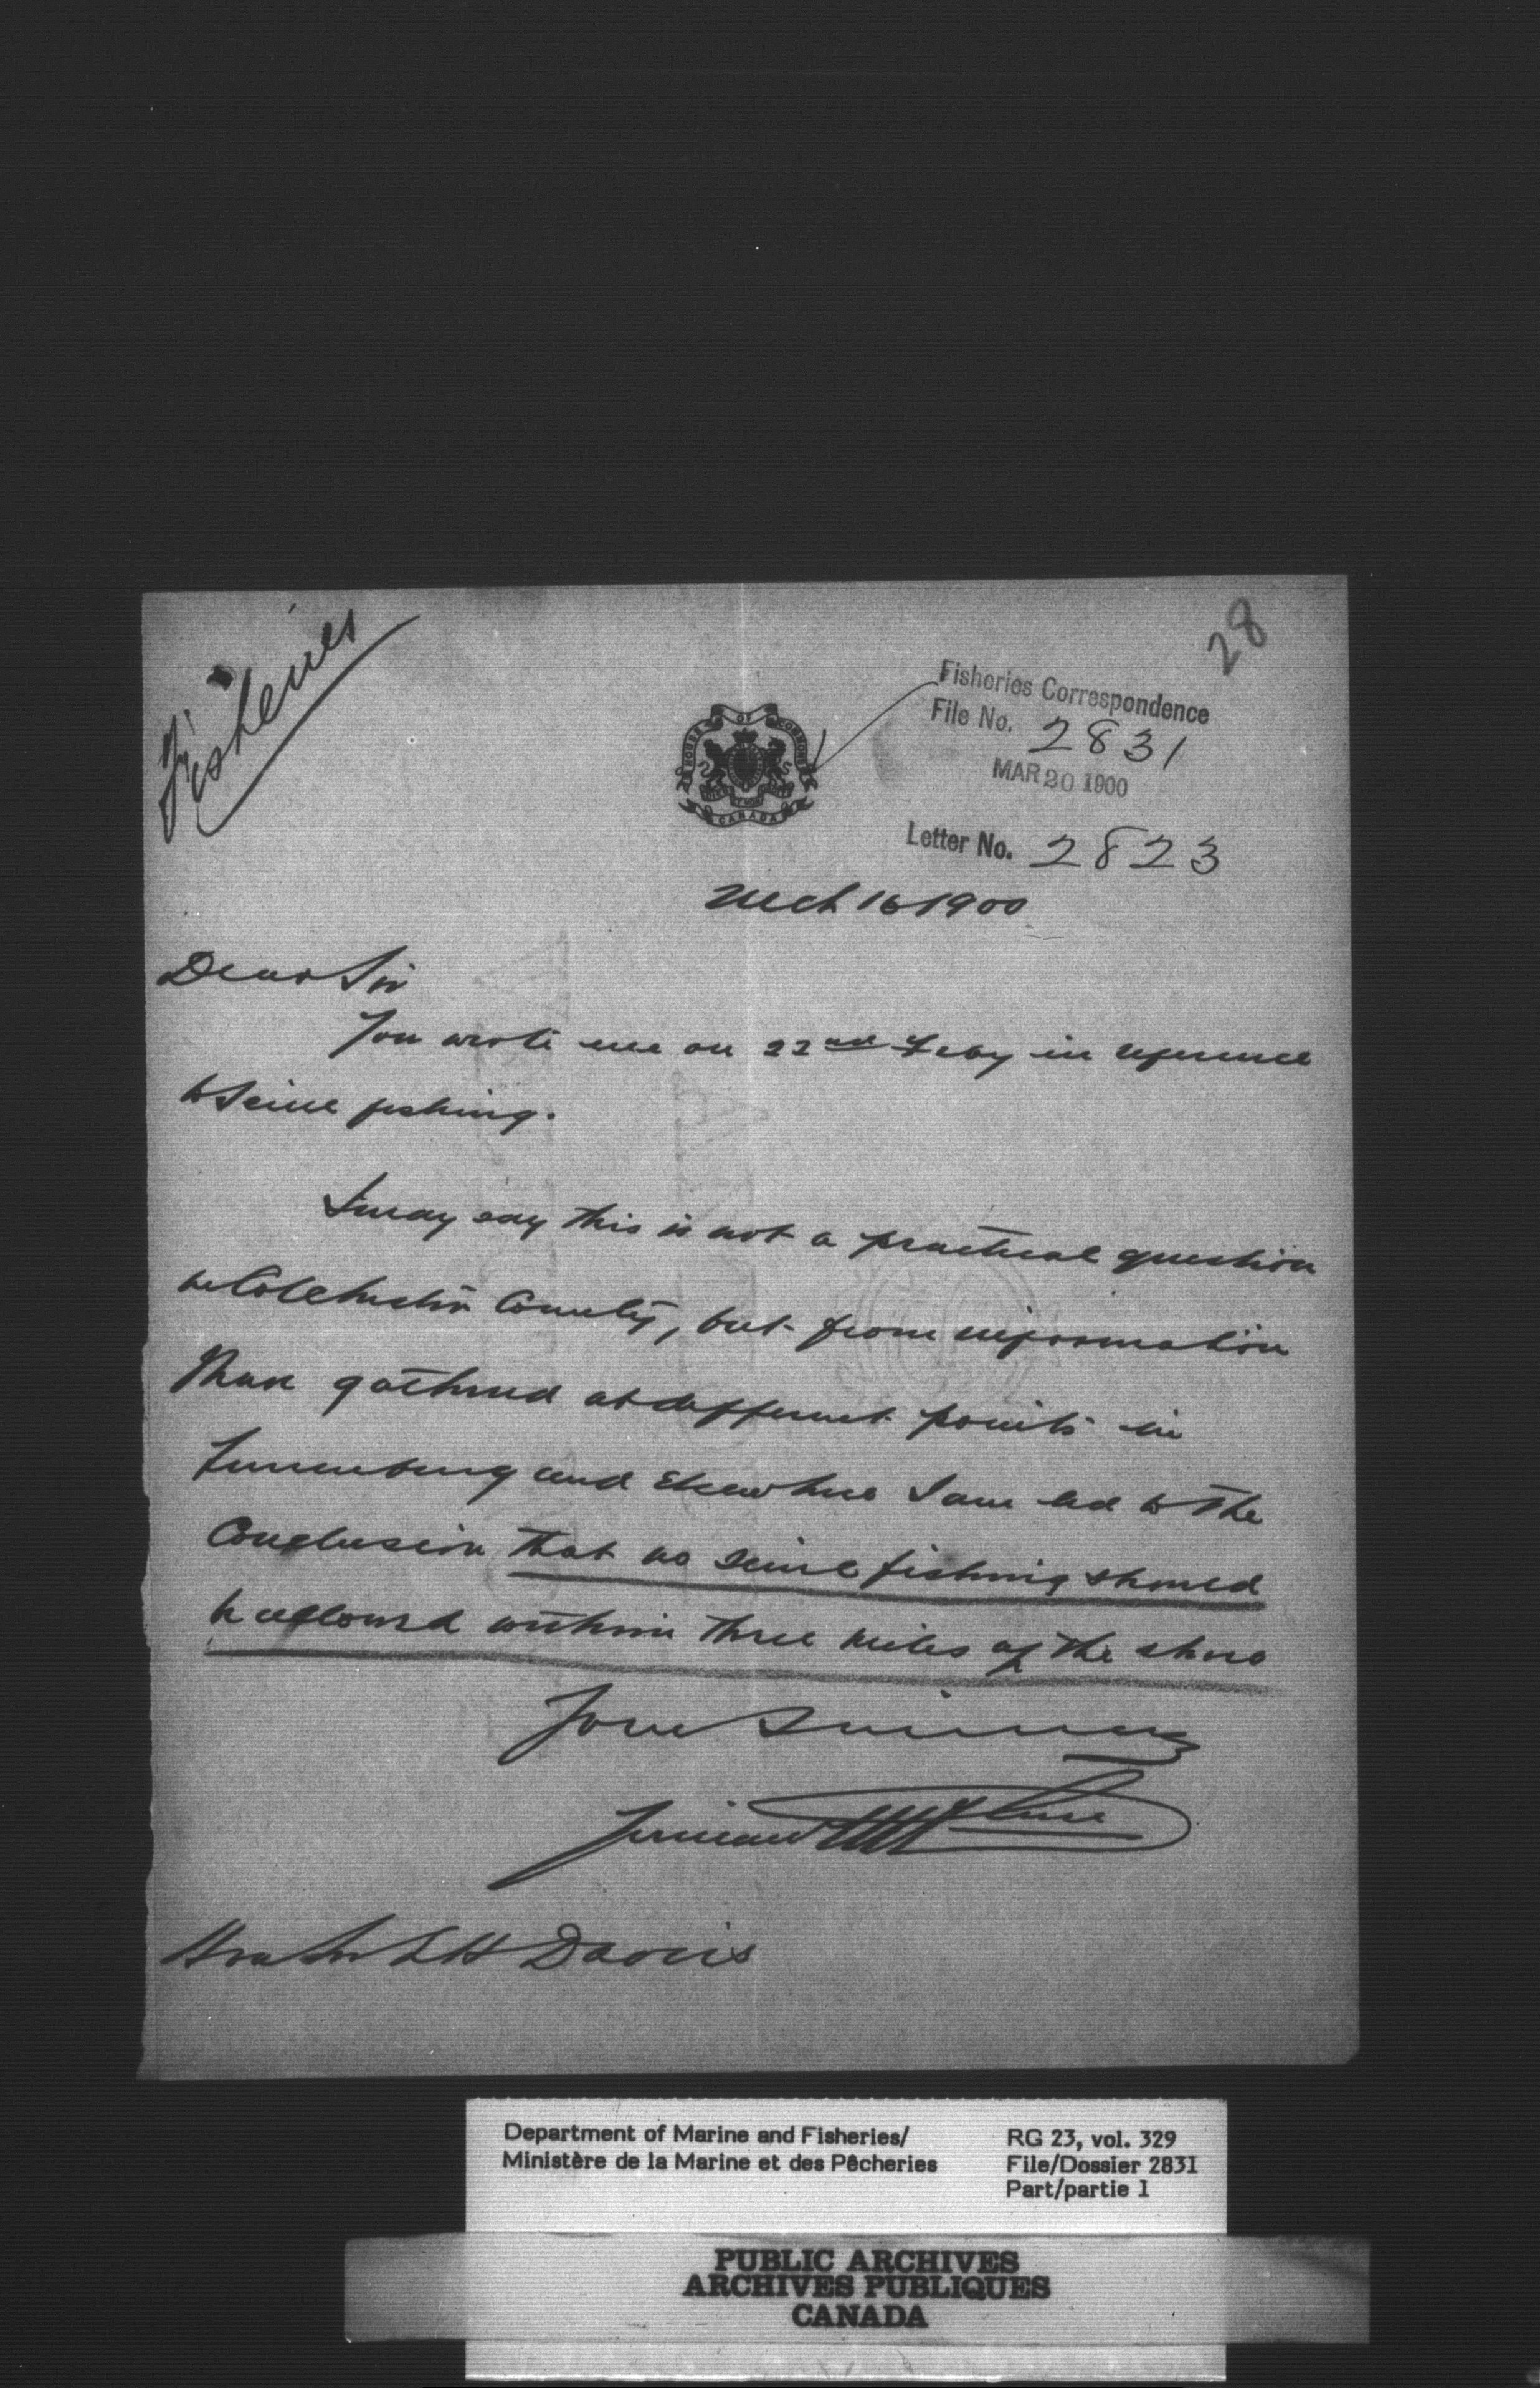 Fisheries
28
Fisheries Correspondence
File No. 2831
MAR 20 1900
Letter No. 2823
HOUSE OF COMMONS
CANADA
Mch 16 1900
Dear Sir
You wrote me on 22nd Feby in reference
to Seine fishing.
I may say this is not a practical question
in Colchester County, but from information
I have gathered at different points in
Lunenburg and Elsewhere I am led to the
Conclusion that no seine fishing should
be allowed within three miles of the shore
Yours Sincerely
Firman McClure
Hon Sir L H Davies
Department of Marine and Fisheries/
Ministère de la Marine et des Pêcheries
RG 23, vol. 329
File/Dossier 2831
Part/partie 1
PUBLIC ARCHIVES
ARCHIVES PUBLIQUES
CANADA